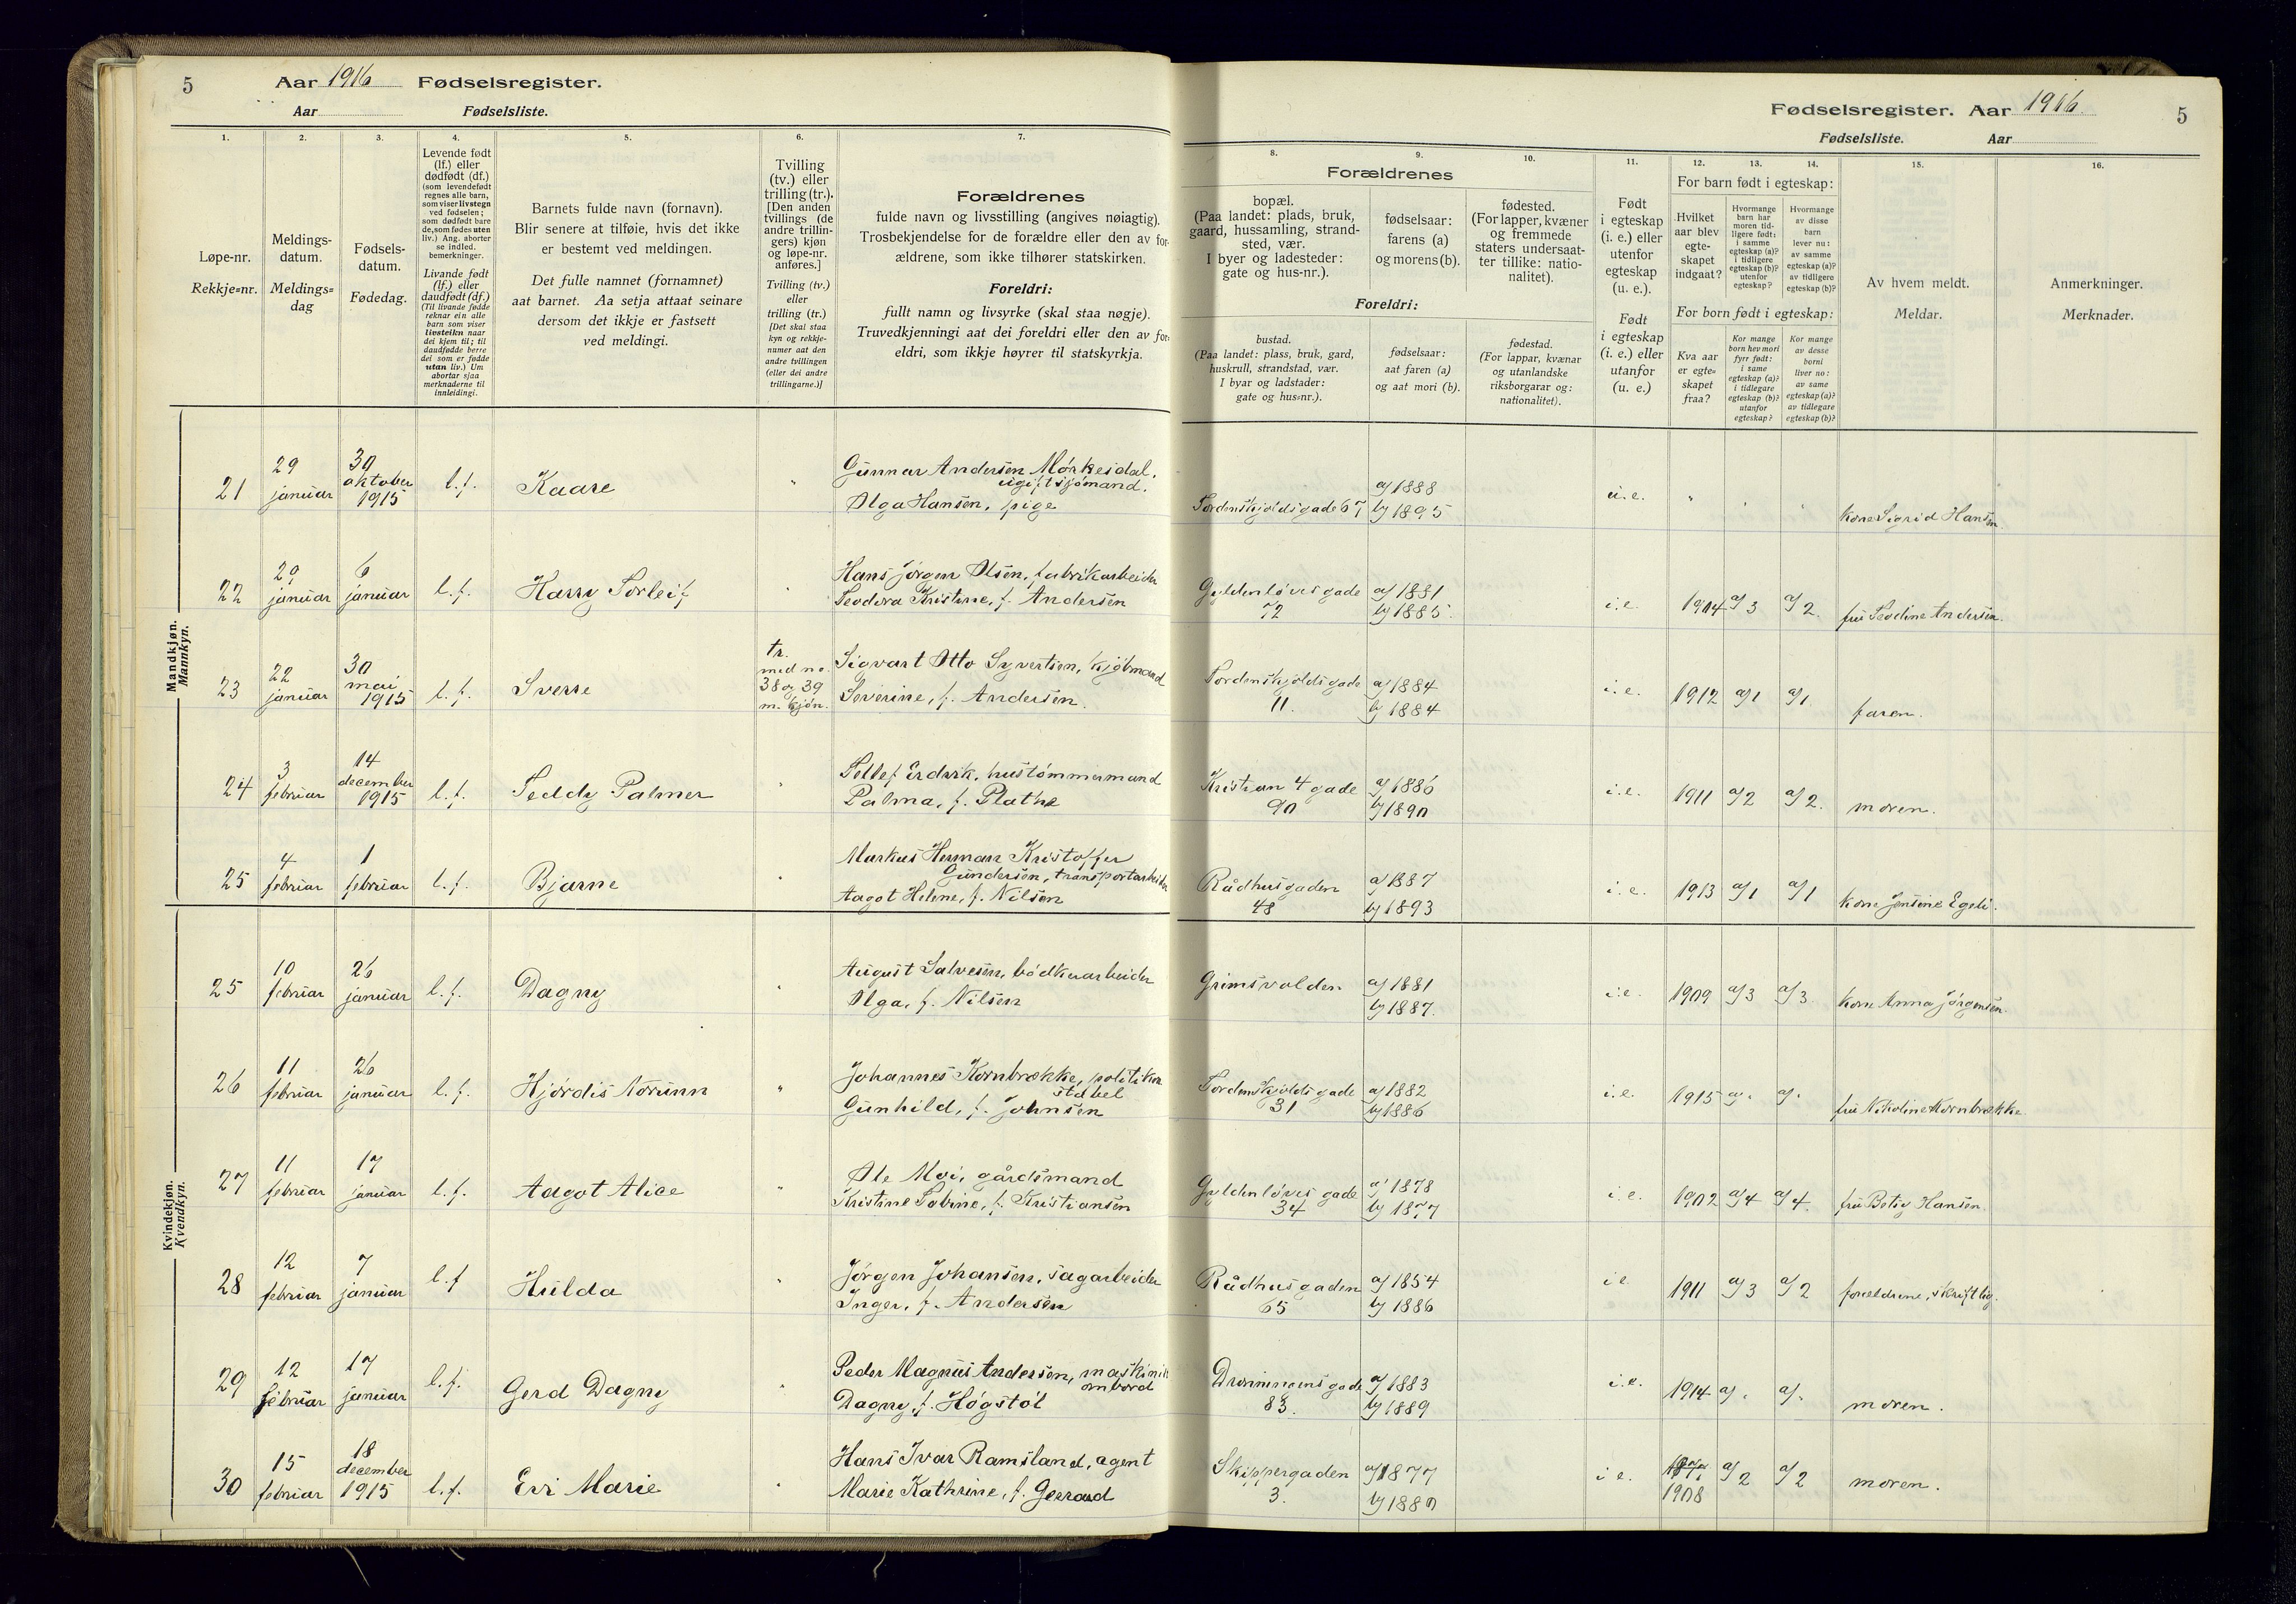 5 Aar 1916 Fødselsregister.
Aar Fødselsliste.
Fødselsregister. Aar 1916. 5
Fødselsliste. Aar
1. 2. 3. 4. 5. 6. 7.
Løpe-nr.
Rekkje=nr.
Meldings-
datum.
Meldings=
dag
Fødsels-
datum.
Fødedag.
Levende født
(lf.) eller
dødfødt (df.)
(som levendefødt
regnes alle barn,
som viser livstegn
ved fødselen;
som dødfødt bare
de, som fødes uten
liv.) Ang. aborter
se indled.
bemerkninger.
Livande født
(lf.) eller
daudfødt (df.)
(Til livande fødde
reknar ein alle
barn som viser
livsteikn naar
dei kjem til; til
daudfødde berre
dei som er fødde
utan liv.) Um
abortar sjaa
merknaderne til
innleidingi.
Barnets fulde navn (fornavn).
Blir senere at tilføie, hvis det ikke
er bestemt ved meldingen.
Det fulle namnet (fornamnet)
aat barnet. Aa setja attaat seinare
dersom det ikkje er fastsett
ved meldingi.
Tvilling
(tv.) eller
trilling (tr.).
[Den anden
tvillings (de
andre trillin-
gers) kjøn
og løpe-nr.
anføres.]
Tvilling (tv.)
eller
trilling (tr.)
[Det skal staa
kyn og rekkje-
numer aat den
andre tvillingen
(eller dei andre
trillingarne.)]
Forældrenes
fulde navn og livsstilling (angives nøiagtig).
Trosbekjendelse for de forældre eller den av for-
ældrene, som ikke tilhører statskirken.
Foreldri:
fullt namn og livsyrke (skal staa nøgje).
Truvedkjenningi aat dei foreldri eller den av for-
eldri, som ikkje høyrer til statskyrkja.
8. 9. 10. 11. 12. 13. 14. 15. 16.
Forældrenes
bopæl.
(Paa landet: plads, bruk,
gaard, hussamling, strand-
sted, vær.
I byer og ladesteder:
gate og hus-nr.).
fødselsaar:
farens (a)
og morens (b).
fødested.
(For lapper, kvæner
og fremmede
staters undersaat-
ter tillike: natio-
nalitet).
Foreldri:
bustad.
(Paa landet: plass, bruk, gard,
huskrull, strandstad, vær.
I byar og ladstader:
gate og hus=nr.).
fødselsaar:
aat faren (a)
og aat mori (b).
fødestad.
(For lappar, kvænar
og utanlandske
riksborgarar og:
nationalitet).
Født
i egteskap
(i. e.) eller
utenfor
egteskap
(u. e.).
Født
i egteskap
(i. e.) eller
utanfor
(u. e.)
For barn født i egteskap:
Hvilket
aar blev
egte-
skapet
indgaat?
Hvormange
barn har
moren tid-
ligere født:
i samme
egteskap (a)?
i tidligere
egteskap (b)?
utenfor
egteskap?
Hvormange
av disse
barn
lever nu:
av samme
egteskap (a)?
av tidligere
egteskap (b)?
For born født i egteskap:
Kva aar
er egte=
skapet
fraa?
Kor mange
born hev mori
fyrr født:
i same
egteskap (a)?
i tidlegare
egteskap (b)?
utanfor
egteskap?
Kor mange
av desse
borni
liver no:
av same
egteskap (a)?
av tidlegare
egteskap (b)?
Av hvem meldt.
Meldar.
Anmerkninger.
Merknader.
Mandkjøn.
Mannkyn.
21 29 januar 30 oktober 1915 l.f. Kaare " Gunnar Andersen Mørkesdal, ugift sjømand. Olga Hansen, pige Tordenskjoldsgade 67 a/ 1888 b/ 1895 u.e. " kone Sigrid Hansen
22 29 januar 6 januar l.f. Harry Torleif " Hans Jørgen Olsen, fabrikarbeider Teodora Kristine, f. Andersen Gyldenløvesgade 72 a/ 1881 b/ 1885. i.e. 1904 a/ 3 a/ 2. fru Teodine Andersen.
23 22 januar 30 mai 1915 l.f. Sverre tr. med no 38 og 39 m. kjøn. Sigvart Otto Syvertsen, kjøbmand Severine, f. Andersen. Tordenskjoldsgade 11. a/ 1884 b/ 1884 i.e. 1912 a/1 a/1. faren.
24 3 februar 14 december 1915 l.f. Teddy Palmer " Tellef Erdvik, hustømmermand Palma, f. Plathe Kristian 4 gade 90 a/ 1886 b/ 1890 i.e. 1911 a/2 a/2. moren.
25 4 februar 1 februar l.f. Bjarne " Markus Herman Kristoffer Gundersen, transportarbeider Aagot Helene, f. Nilsen Rådhusgaden 48 a/ 1887 b/ 1893 i.e. 1913 a/1 a/1 kone Jensine Egeli.
Kvindekjøn.
Kvendkyn.
25 10 februar 26 januar l.f. Dagny " August Salvesen, bødkerarbeider Olga, f. Nilsen Grimsvolden a/ 1881 b/ 1887. i.e. 1909 a/3 a/3. kone Anna Jørgensen.
26 11 februar 26 januar l.f. Hjørdis Norunn " Johannes Kornbrække, politikonstabel Gunhild, f. Johnsen Tordenskjoldsgade 31 a/ 1882 b/ 1886 i.e. 1915 a/. a/. fru Nikoline Kornbrække
27 11 februar 17 januar l.f. Aagot Alice " Ole Moi, gårdsmand Kristine Sabine, f. Kristiansen Gyldenløvesgade 34 a/ 1878 b/ 1877 i.e. 1902 a/4 a/4. fru Betsy Hansen.
28 12 februar 7 januar l.f Hulda " Jørgen Johansen, sagarbeider Inger, f. Andersen Rådhusgaden 65 a/ 1854 b/ 1886 i.e 1911 a/3 a/2 forældrene, skriftlig.
29 12 februar 17 januar l.f. Gerd Dagny " Peder Magnus Andersen, maskinist ombord Dagny, f. Høgstøl Dronningensgade 83. a/ 1883 b/ 1889 i.e. 1914 a/. a/. moren.
30 15 februar 18 december 1915 l.f. Evi Marie " Hans Ivar Ramsland, agent Marie Kathrine, f. Gerrard Skippergaden 3. a/ 1877 b/ 1880 i e. 1908 a/2 a/2 moren.